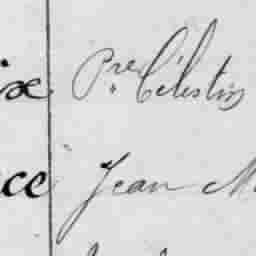 ix Pre Célestin
ce Jean M